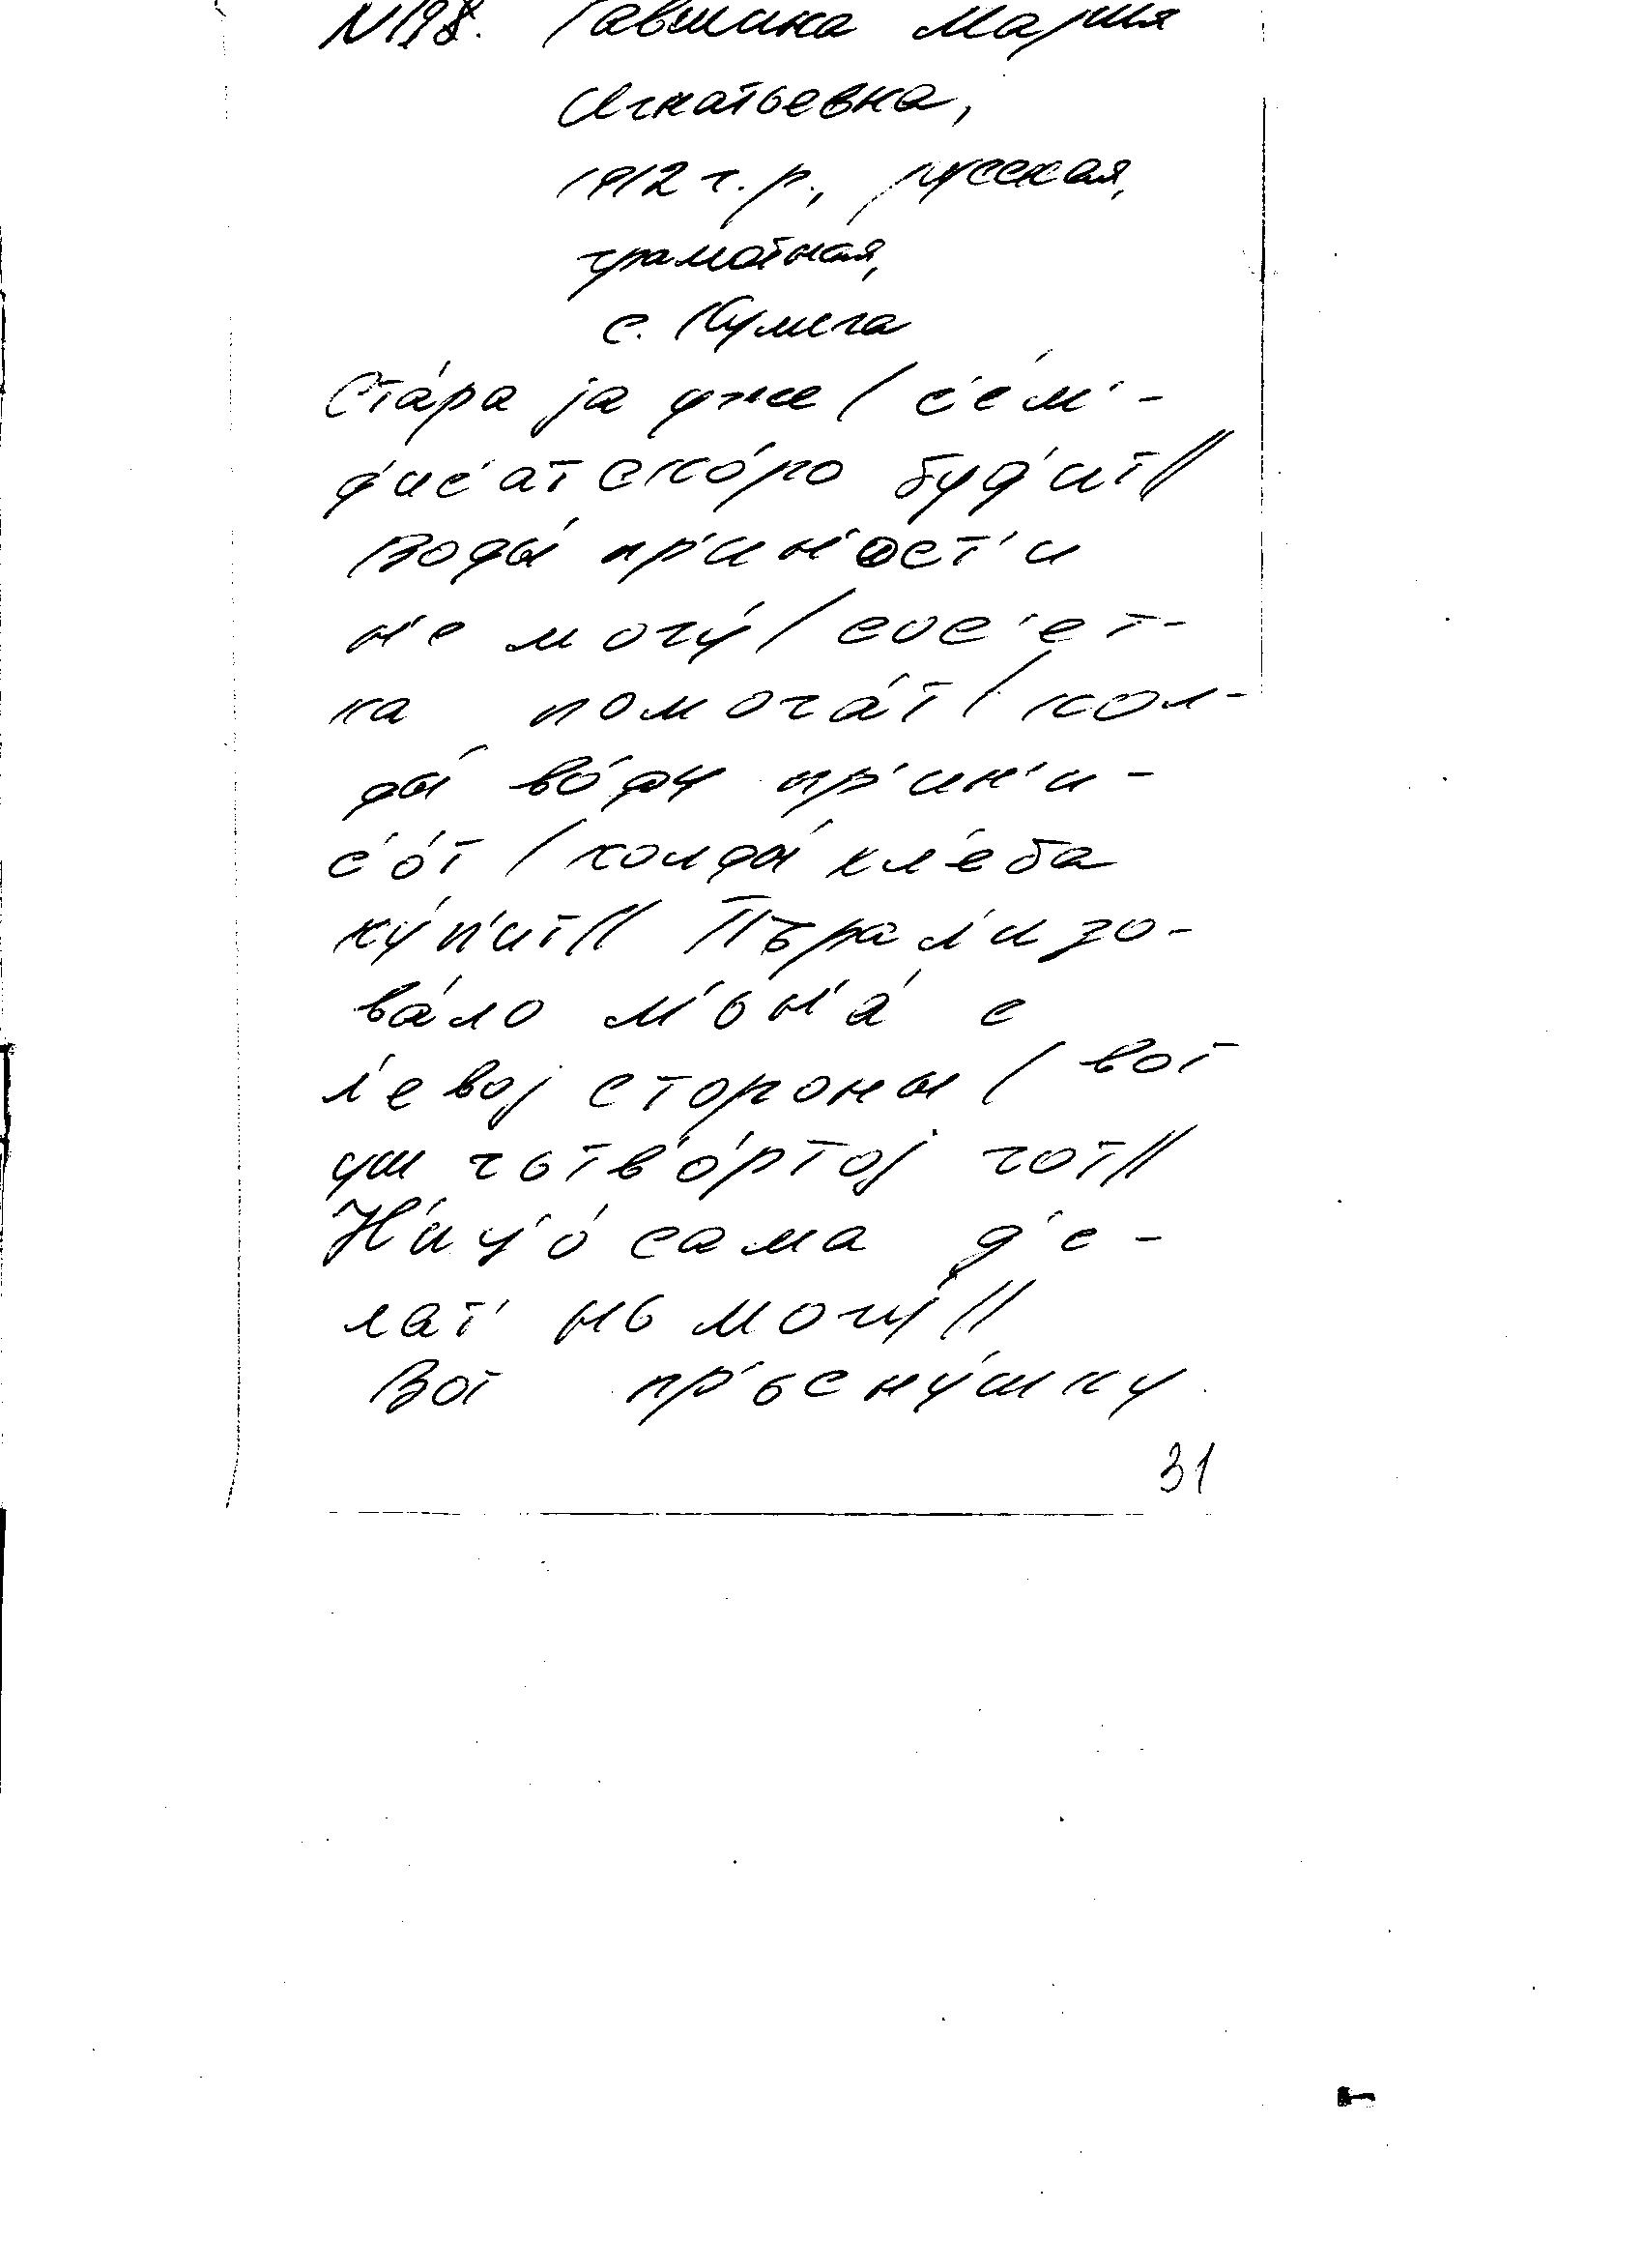 №198. Гавшина Мария
Игнатьевна,
1912 г.р., русская,
грамотная,
с. Кулига
Ста́ра jа уже / с'е́м'-
д'ис'ат ско́ро буд'ит //
Воды́ пр'ин'ост'и
н'е могу́ / сос'ет-
ка помога́т / кол-
ды́ во́ду пр'ин'и-
с'о́т / колды́ хл'е́ба
ку́п'ит // Пърал'изо-
ва́ло м'ьн'а́ с
л'евоj стороны / вот
уш чьтв'о́ртоj гот //
Н'ич'о́ сама д'е-
лат' нь могу́ //
Вот пр'ьсну́шку
31